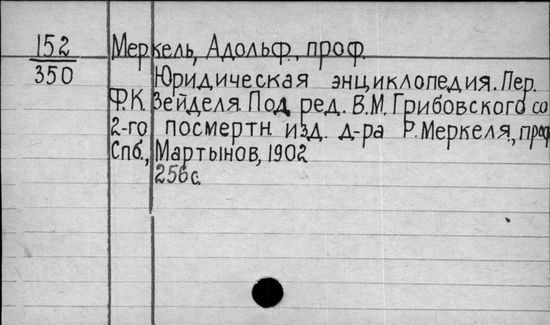 152
350
Меркель, Адольф, проф.
Юридическая энциклопедия. Пер.
Ф.К. Зейделя. Под ред. В.М. Грибовского со
2-го посмертн изд. д-ра Р. Меркеля, проф
Спб., Мартынов, 1902
256с.